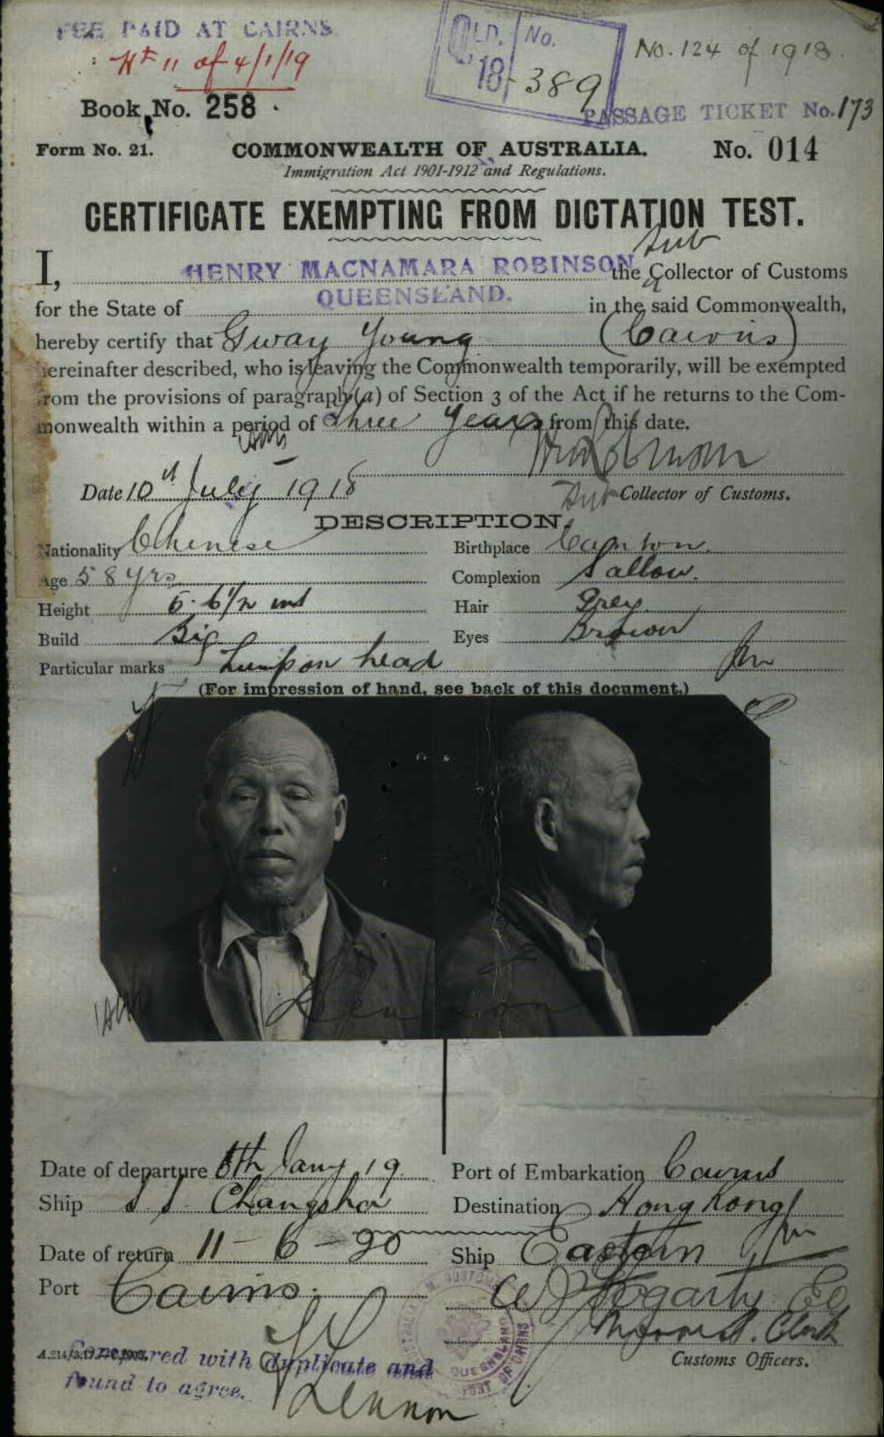 FEE PAID AT CAIRNS
No 11 of 4/1/19
QLD. No.
18-389
No. 124 of 1918.
Book No. 258
PASSAGE TICKET No. 173
Form No. 21.
COMMONWEALTH OF AUSTRALIA.
No. 014
Immigration Act 1901-1912 and Regulations.
CERTIFICATE EXEMPTING FROM DICTATION TEST.
Sub
I, HENRY MACNAMARA ROBINSON the Collector of Customs
for the State of QUEENSLAND. in the said Commonwealth,
hereby certify that Gway Young (Cairns)
hereinafter described, who is leaving the Commonwealth temporarily, will be exempted
from the provisions of paragraph (a) of Section 3 of the Act if he returns to the Com-
monwealth within a period of Three Years from this date.
Date 10th July 1918
Sub Collector of Customs.
DESCRIPTION.
Nationality Chinese
Birthplace Canton.
Age 58 yrs
Complexion Sallow.
Height 5-6 1/2 ins
Hair Grey.
Build Big
Eyes Brown
Particular marks Lump on head
(For impression of hand, see back of this document.)
Date of departure 8th Jany 19
Port of Embarkation Cairns
Ship S.S. Changsha
Destination Hong Kong
Date of return 11-6-20
Ship Eastern
Port Cairns.
W J Fogarty
Clerk
Customs Officers.
Compared with duplicate and
found to agree.
Lennon